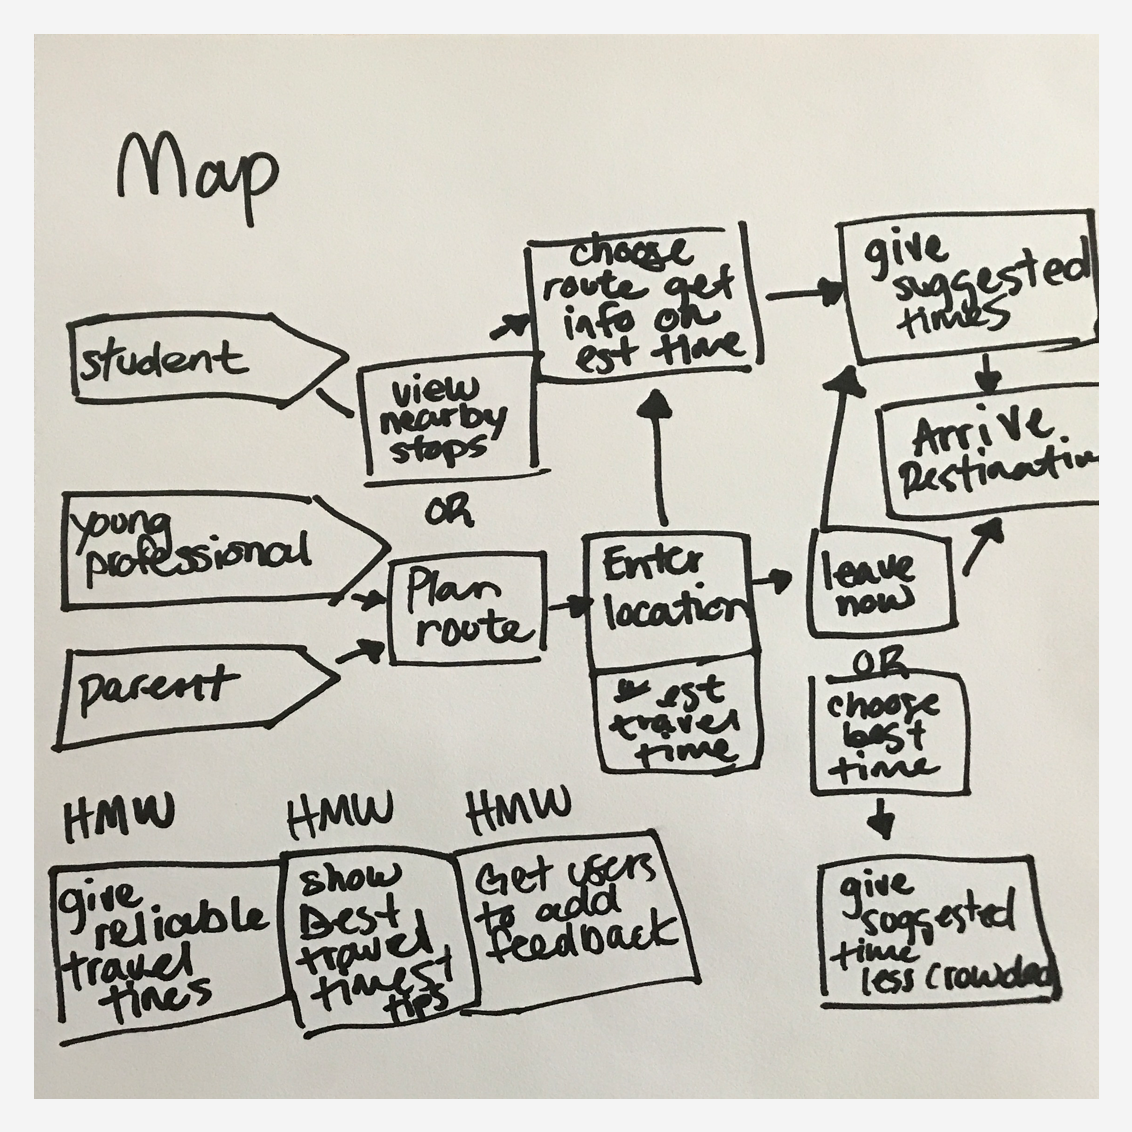 Map
student
young
professional
parent
view
nearby
stops
OR
Plan
route
choose
route get
info on
est time
Enter
location
est
travel
time
give
suggested
times
Arrive
Destination
leave
now
OR
choose
best
time
give
suggested
time
less crowded
HMW
give
reliable
travel
times
HMW
show
Best
travel
times+
tips
HMW
Get users
to add
feedback